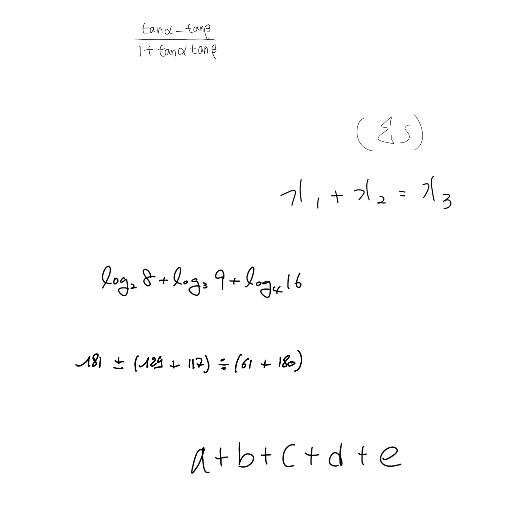 \frac{\tan\alpha - \tan\beta}{1 + \tan\alpha \tan\beta}
(Σs)
x_1 + x_2 = x_3
log_2 8 + log_3 9 + log_4 16
181 ± (129 + 117) ÷ (61 + 180)
a + b + c + d + e